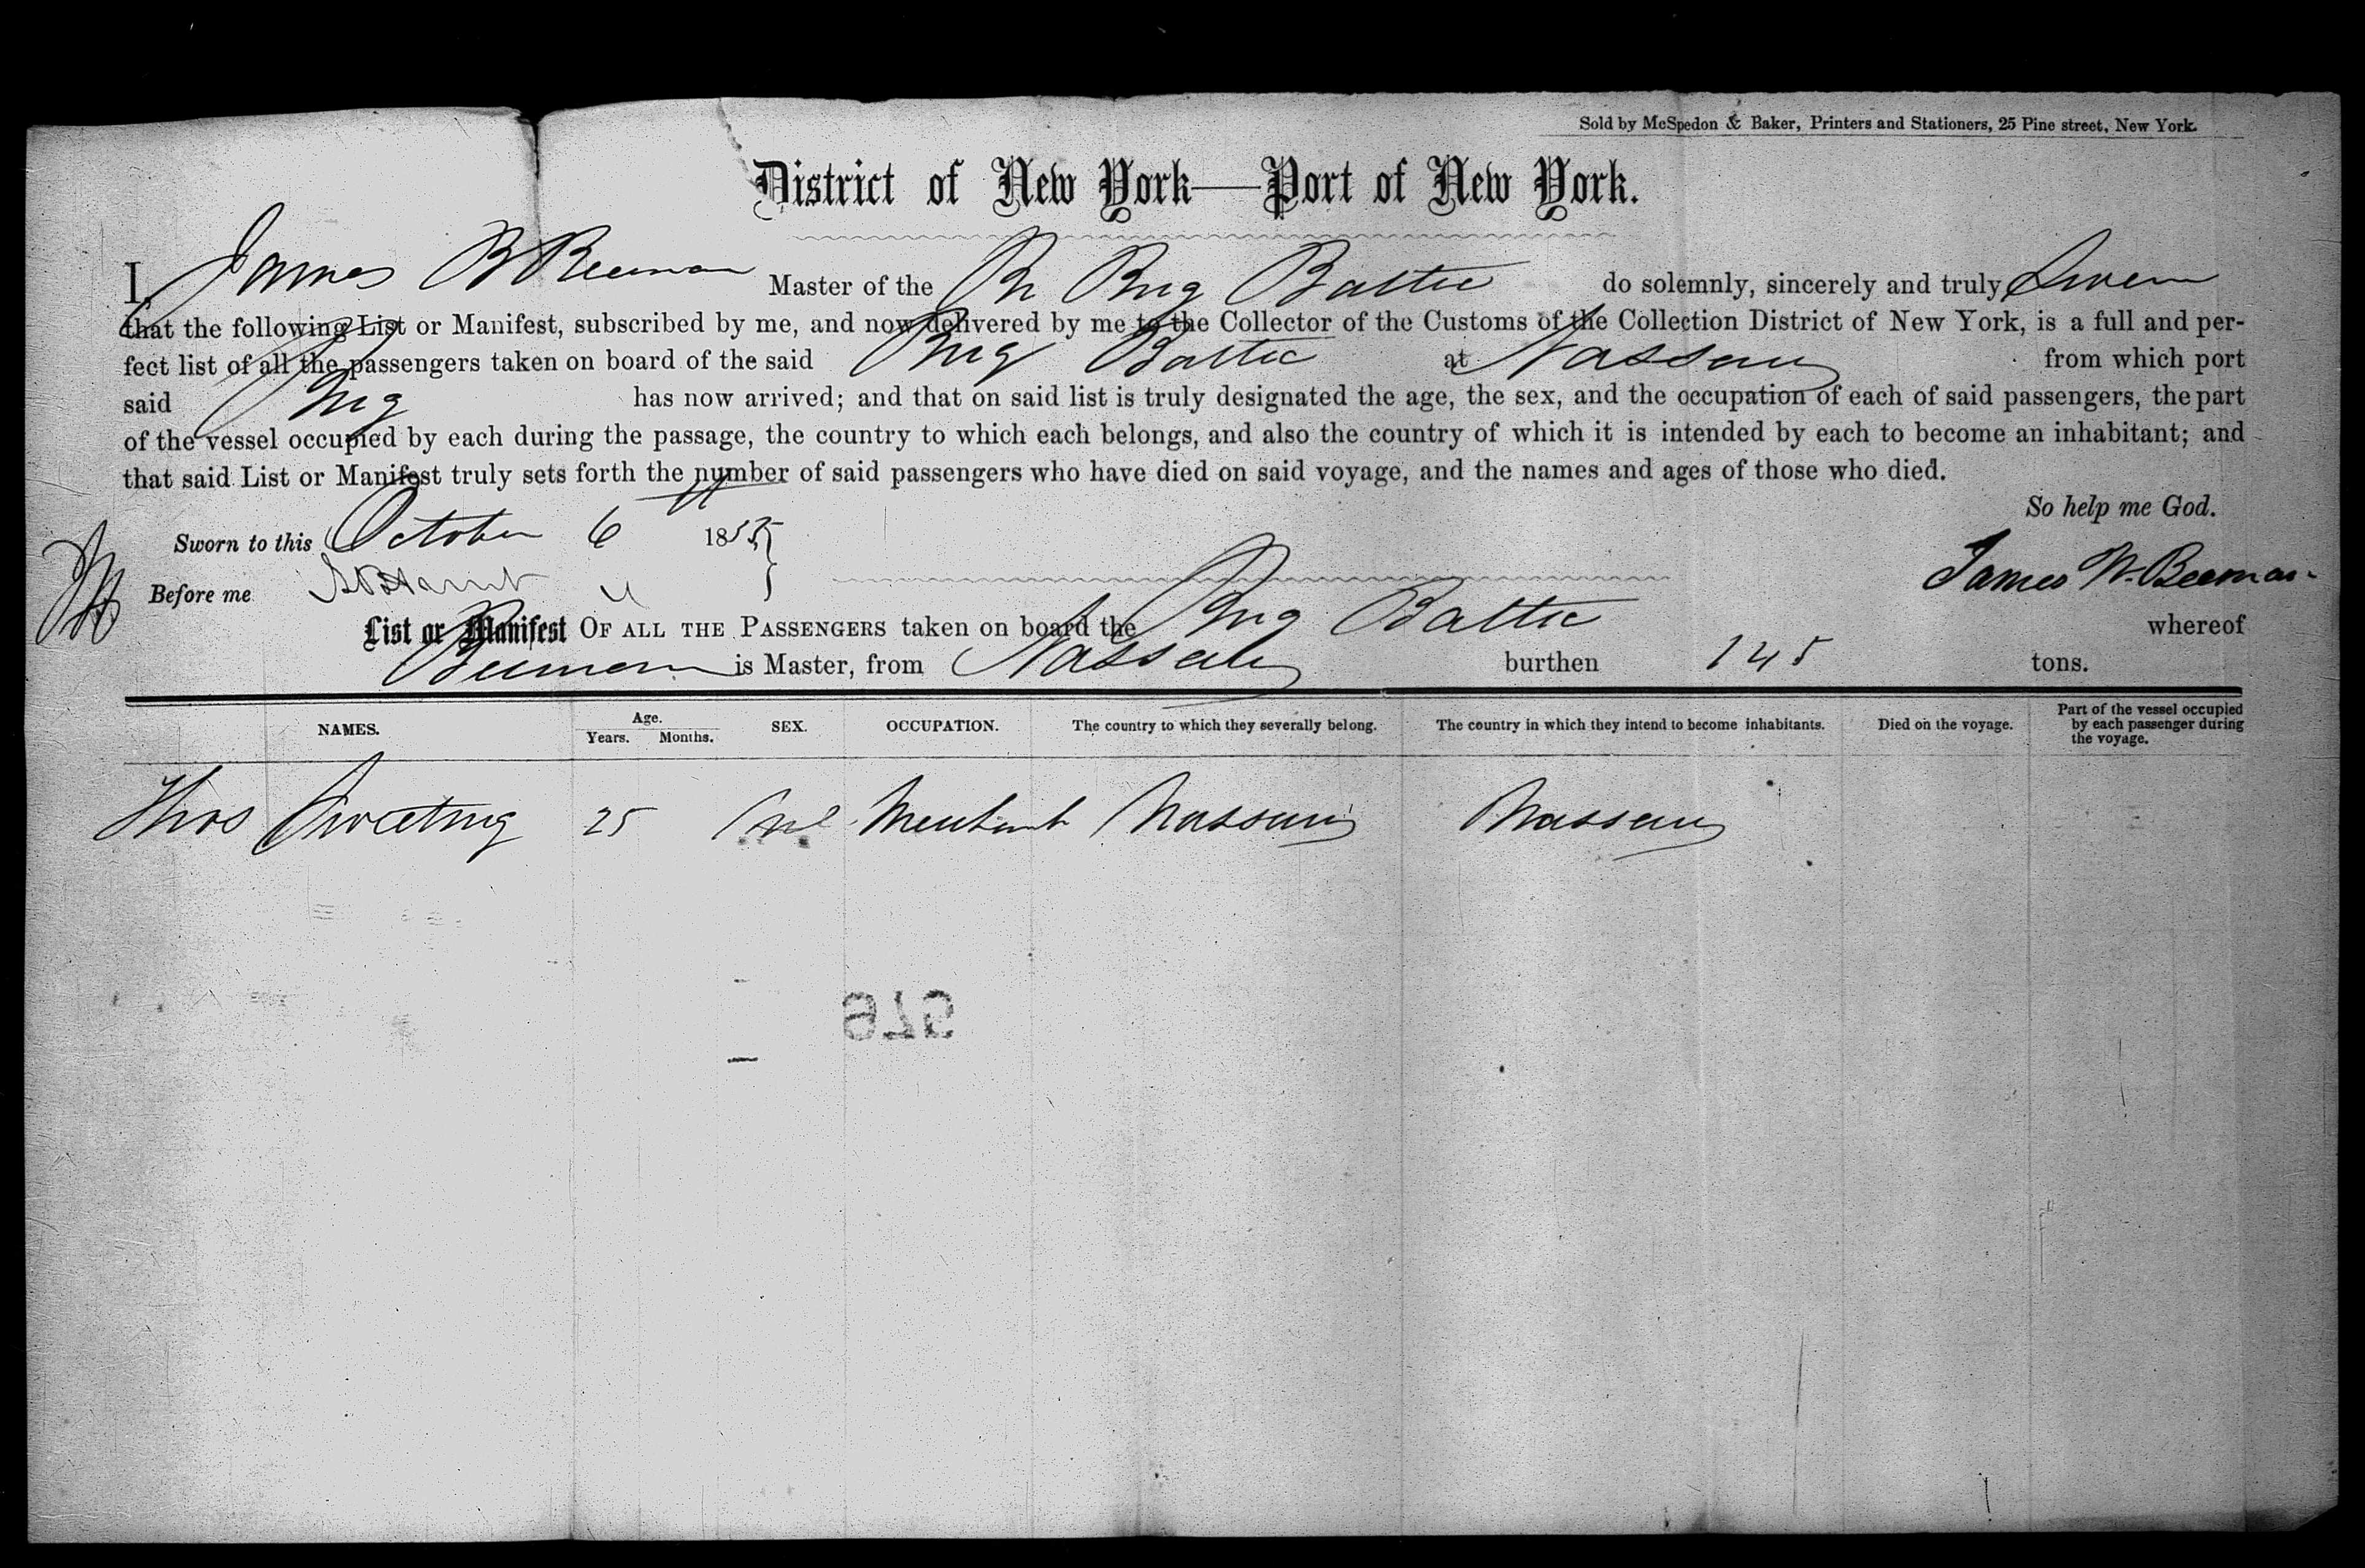 Sold by McSpedon & Baker, Printers and Stationers, 25 Pine street, New York.
District of New York—Port of New York.
I, James B Beeman Master of the Br Brig Baltic do solemnly, sincerely and truly Swear
that the following List or Manifest, subscribed by me, and now delivered by me to the Collector of the Customs of the Collection District of New York, is a full and per-
fect list of all the passengers taken on board of the said Brig Baltic at Nassau from which port
said Brig has now arrived; and that on said list is truly designated the age, the sex, and the occupation of each of said passengers, the part
of the vessel occupied by each during the passage, the country to which each belongs, and also the country of which it is intended by each to become an inhabitant; and
that said List or Manifest truly sets forth the number of said passengers who have died on said voyage, and the names and ages of those who died.
So help me God.
Sworn to this October 6 th
Before me
James W. Beeman
List or Manifest OF ALL THE PASSENGERS taken on board the Brig Baltic whereof
Beeman is Master, from Nassau burthen 145 tons.
NAMES. Age. Years. Months. SEX. OCCUPATION. The country to which they severally belong. The country in which they intend to become inhabitants. Died on the voyage. Part of the vessel occupied by each passenger during the voyage.
Thos Sweeting 25 Merchant Nassau Nassau
976